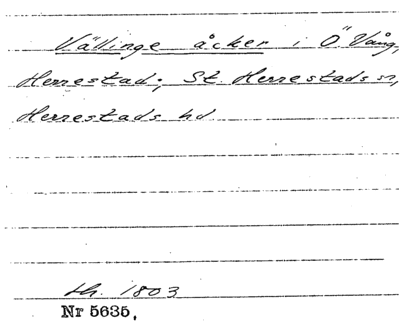 Vällinge åcker i Ö Vång,
Herrestad; St Herrestads sn,
Herrestads hd
sh. 1803
Nr 5635,